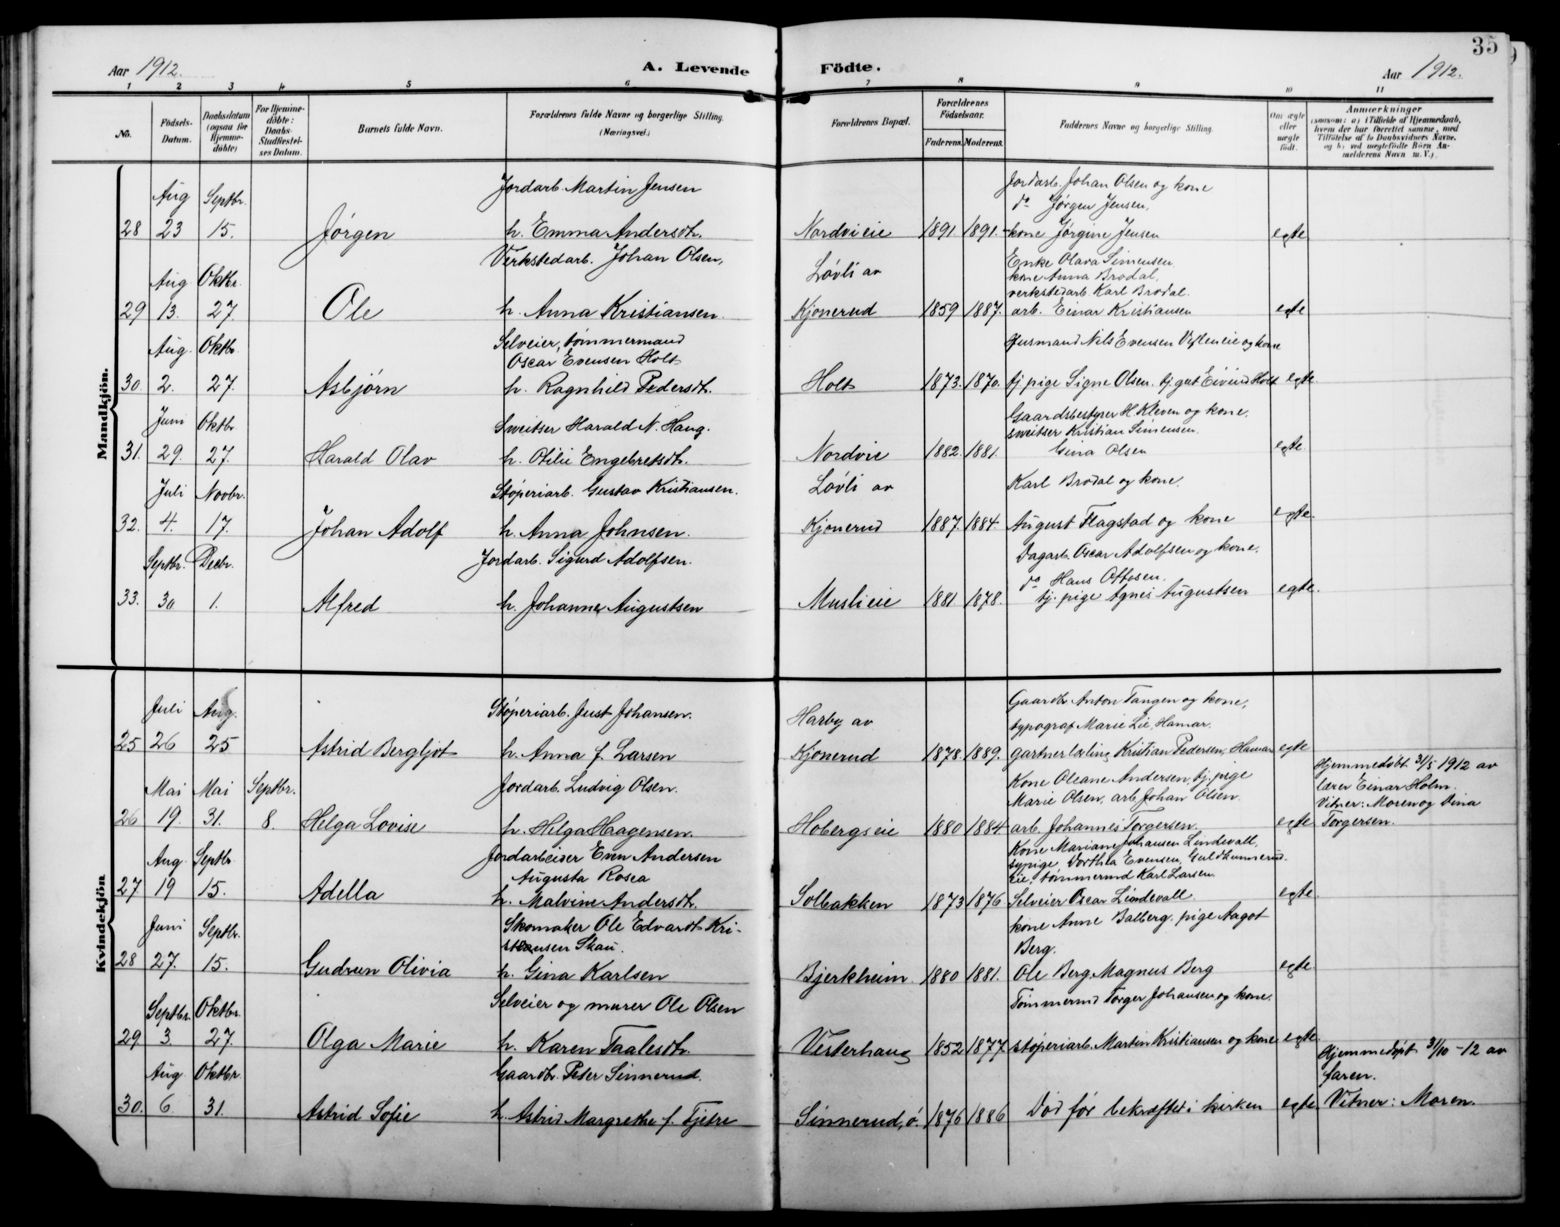 35
Aar 1912.
A. Levende Födte.
Aar 1912.
1 2 3 4 5 6 7 8 9 10 11
No.
Födsels-Datum.
Daabsdatum (ogsaa för Hjemmedöbte)
For Hjemmedöbte: Daabs-Stadfæstelses Datum.
Barnets fulde Navn.
Forældrenes fulde Navne og borgerlige Stilling.
(Næringsvei.)
Forældrenes Bopæl.
Forældrenes Födselsaar.
Faderens. Moderens.
Faddernes Navne og borgerlige Stilling.
Om ægte eller uægte födt.
Anmærkninger
(saasom: a) i Tilfælde af Hjemmedaab, hvem der har forrettet samme, med Tilföielse af to Daabsvidners Navne. og b) ved uægtefödte Börn Anmelderens Navn m. V.).
Mandkjön.
Aug Septbr. Jordarb. Martin Jensen Jordarb. Johan Olsen og kone
do Jørgen Jensen,
28 23 15. Jørgen h. Emma Andersdt. Nordvi eie 1891. 1891. kone Jørgine Jensen egte
Verkstedarb. Johan Olsen, Enke Olava Simensen
Aug Oktbr. Løvli av kone Anna Brodal.
verkstedarb. Karl Brodal.
29 13. 27 Ole h. Anna Kristiansen Kjonerud 1859 1887. arb. Einar Kristiansen egte
Aug. Oktbr. Selveier, tømmermand
Oscar Evensen Holt Husmand Nils Evensen Vesteneie og kone
30. 2. 27. Asbjørn h. Ragnhild Pedersdt. Holt 1873. 1870. tj. pige Signe Olsen. tj. gut Eivind Holt egte.
Juni Oktbr Sveitser Harald N. Haug. Gaardsbestyrer H. Kleven og kone,
sveitser Kristian Simensen.
31. 29. 27. Harald Olav h. Otilie Engebretsdt. Nordvie 1882. 1881. Gina Olsen egte.
Juli Novbr. Støperiarb. Gustav Kristiansen. Løvli av Karl Brodal og kone.
32. 4. 17. Johan Adolf h. Anna Johnsen. Kjonerud 1887. 1884. August Flagstad og kone egte.
Septbr. Decbr. Jordarb. Sigurd Adolfsen. Dagarb. Oscar Adolfsen og kone.
do Hans Ottosen.
33. 30 1. Alfred h. Johanne Augustsen Musli eie 1881 1878. tj. pige Agnes Augustsen egte.
Kvindekjön
Juli Aug. Støperiarb. Just Johansen. Harby av Gaardbr. Anton Tangen og kone,
typograf Marie Lie, Hamar.
25 26 25 Astrid Bergljot h. Anna f. Larsen Kjonerud 1878. 1889. gartnerlærling Kristian Pedersen, Hamar egte
Mai Mai Septbr. Jordarb. Ludvig Olsen. Kone Oleane Andersen, tj. pige
Marie Olsen, arb. Johan Olsen.
26 19. 31. 8. Helga Lovise h. Helga Haagensen. Hobergseie 1880 1884 arb. Johannes Torgersen. egte
Hjemmedøbt 31/5 1912 av
lærer Einar Holm.
Vitner: Moren og Dina
Torgersen.
Aug. Septbr. Jordarbeiser Even Andersen Kone Mariane Johansen Lindevall,
Augusta Rosea sypige Dorthea Evensen, Guldhammerud-
eie, tømmermd Karl Larsen
27 19 15. Adella h. Malvine Andersdt. Solbakken 1873 1876 Selveier Oscar Lindevall. egte
Juni Septbr. Skomaker Ole Edvardt Kri- kone Anne Balberg. pige Aagot
stiansen Skau. Berg.
28 27. 15. Gudrun Olivia h. Gina Karlsen Bjerkheim 1880 1881. Ole Berg. Magnus Berg egte
Septbr. Oktbr. Selveier og murer Ole Olsen Tømmermd Torger Johansen og kone.
29 3. 27. Olga Marie h. Karen Taalesdt. Vesterhaug 1852 1877. støperiarb. Martin Kristiansen og kone egte
Aug Oktbr Gaardbr. Peter Sinnerud.
30. 6 31. Astrid Sofie h. Astrid Margrethe f. Tjetre Sinnerud, ö. 1876 1886 Død før bekræftet i kirken egte.
Hjemmedøpt 31/10 -12 av
faren.
Vitner: Moren.